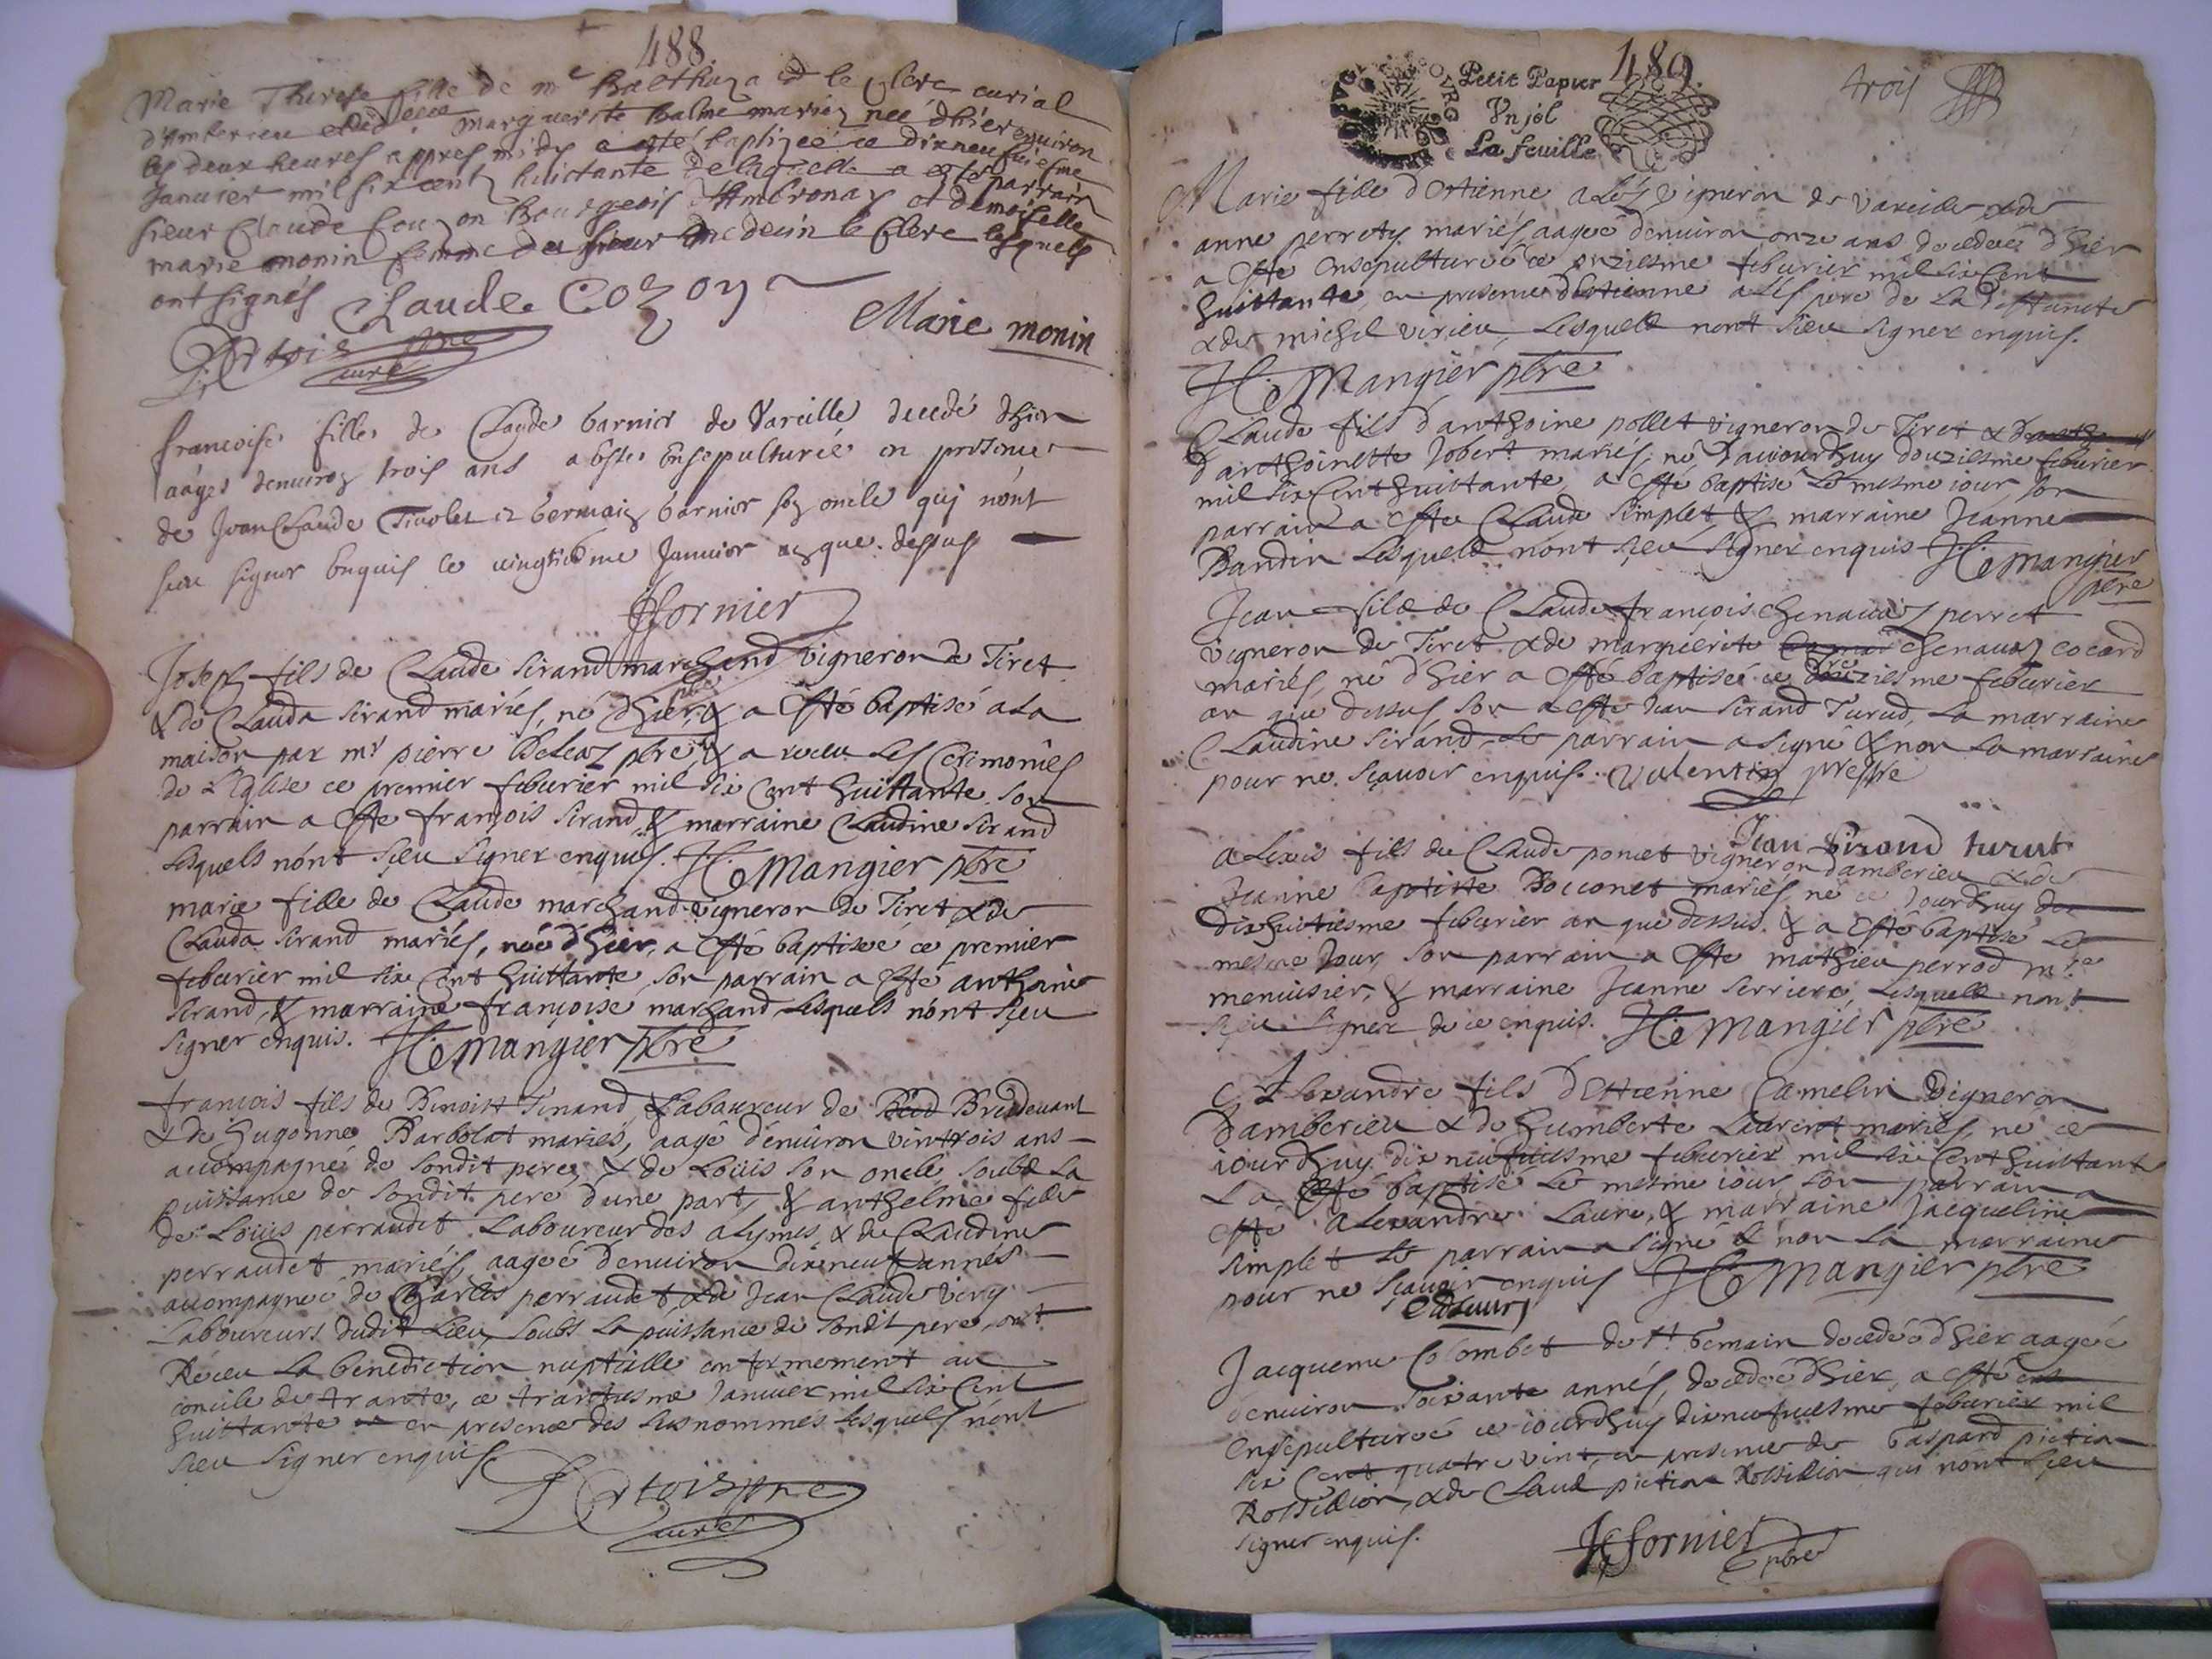 488.
Marie Therese fille de me Balthaza et le Clerc curial
d'Amberieu et de marguerite Balme mariez née d'hier enuiron
les deux heures appres midy a esté baptizeé ce dixneufuiesme
Januier mil six cents huictante de laquelle a este parrain
sieur Claude Couzon Bourgeois d'Ambronay et demoiselle
marie monin femme du sieur medecin le Clerc lesquels
ont signés Claude Cozon
Marie monin
curé
francoise fille de Claude Garnier de Vareille decedé d'hier
aâgeé denuiron trois ans a este Ensepulturée en presence
de Jean Claude Tinolet et Germain Garnier son oncle qui n'ont
sceu signer Enquis ce vingtiesme Januier an que dessus
Fornier
pbre
Joseph fils de Claude Sirand marchand vigneron de Tiret
& de Clauda Sirand mariés, né d'hier & a esté baptisé a la
maison par mr pierre pbre, & a receu Les Ceremonies
de L'Eglise ce premier feburier mil six Cent huittante son
parrain a esté françois Sirand, & marraine Claudine Sirand
Lesquels n'ont sçeu signer enquis. H. Mangier pbre
marie fille de Claude marchand vigneron de Tiret & de
Clauda Sirand mariés, née d'hier, a esté baptiseé ce premier
feburier mil six Cent huittante son parrain a esté anthoine
Sirand, & marraine françoise marchand Lesquels n'ont sçeu
signer enquis. H. Mangier pbre
francois fils de Benoist Tenand, Laboureur de Bredeuant
& de hugonne Barbolat mariés, aagé d'enuiron vintrois ans
accompagné de sondit pere, & de Loüis son oncle soubs la
puissance de sondit pere d'une part, & anthelmie fille
de Loüis perraudet Laboureur des alymes, & de Claudine
perraudet mariés, aageé d'enuiron dixneuf annés
accompagneé de Charles perraudet, & de Jean Claude
Laboureurs dudit Lieu, soubs La puissance de sondit pere, ont
Receu La benediction nuptialle conformement au
concile de trante, ce trantiesme Januier mil six Cent
huittante en presence des susnommés lesquels n'ont
sçeu signer enquis
curé
489.
Petit Papier
Vn sol
La feuille
trois
Marie fille d'Estienne alés vigneron de vareille & de
anne perrety mariés, aageé d'enuiron onze ans decedeé d'hier
a esté ensepultureé ce onziesme feburier mil six Cent
huittante, en presence d'Estienne alés pere de La deffuncte
& de michel virieu, Lesquels n'ont sçeu signer enquis.
H. Mangier pbre
Claude fils d'anthoine pollet vigneron de Tiret &
d'anthoinette Jobert mariés, né d'auiourdhuy douziesme feburier
mil six Cent huittante, a esté baptisé Le mesme iour, son
parrain a esté Claude Simplet, & marraine Jeanne
Bandin Lesquels n'ont sçeu signer enquis H. Mangier
pbre
Jean fils de Claude françois Chenauaz perret
vigneron de Tiret & de marguerite Chenauaz cocard
mariés, né d'hier a esté baptisé ce treziesme feburier
an que dessus son a esté Jean Sirand Turud, La marraine
Claudine Sirand, Le parrain a signé & non La marraine
pour ne sçauoir enquis. Valentin prestre
Jean Sirand turut
alexis fils de Claude poncet vigneron d'amberieu & de
Jeanne baptiste Bocconet mariés, né ce Jourd'huy
dixhuitiesme feburier an que dessus, & a esté baptisé Le
mesme Jour, son parrain a esté mathieu perrod mtre
menuisier, & marraine Jeanne serriere, Lesquels n'ont
sçeu signer de ce enquis. H. Mangier pbre
Alexandre fils d'Estienne Camelin Vigneron
d'amberieu & de humberte Laurent mariés, né ce
iourd'huy dixneufuiesme feburier mil six Cent huittante
& a esté baptisé Le mesme iour, son parrain a
esté Alexandre Laure, & marraine Jacqueline
Simplet Le parrain a signé & non La marraine
pour ne sçauoir enquis H. Mangier pbre
Jacqueme Colombet de st Germain decedeé d'hier aageé
d'enuiron soixante annés, decedeé d'hier, a esté
Ensepultureé ce iourd'huy dixneufuiesme feburier mil
six Cent quatre vint, en presence de Gaspard pictien
Rossillion, & de Claude pictien Rossillion qui n'ont sçeu
signer enquis.
Fornier
pbre